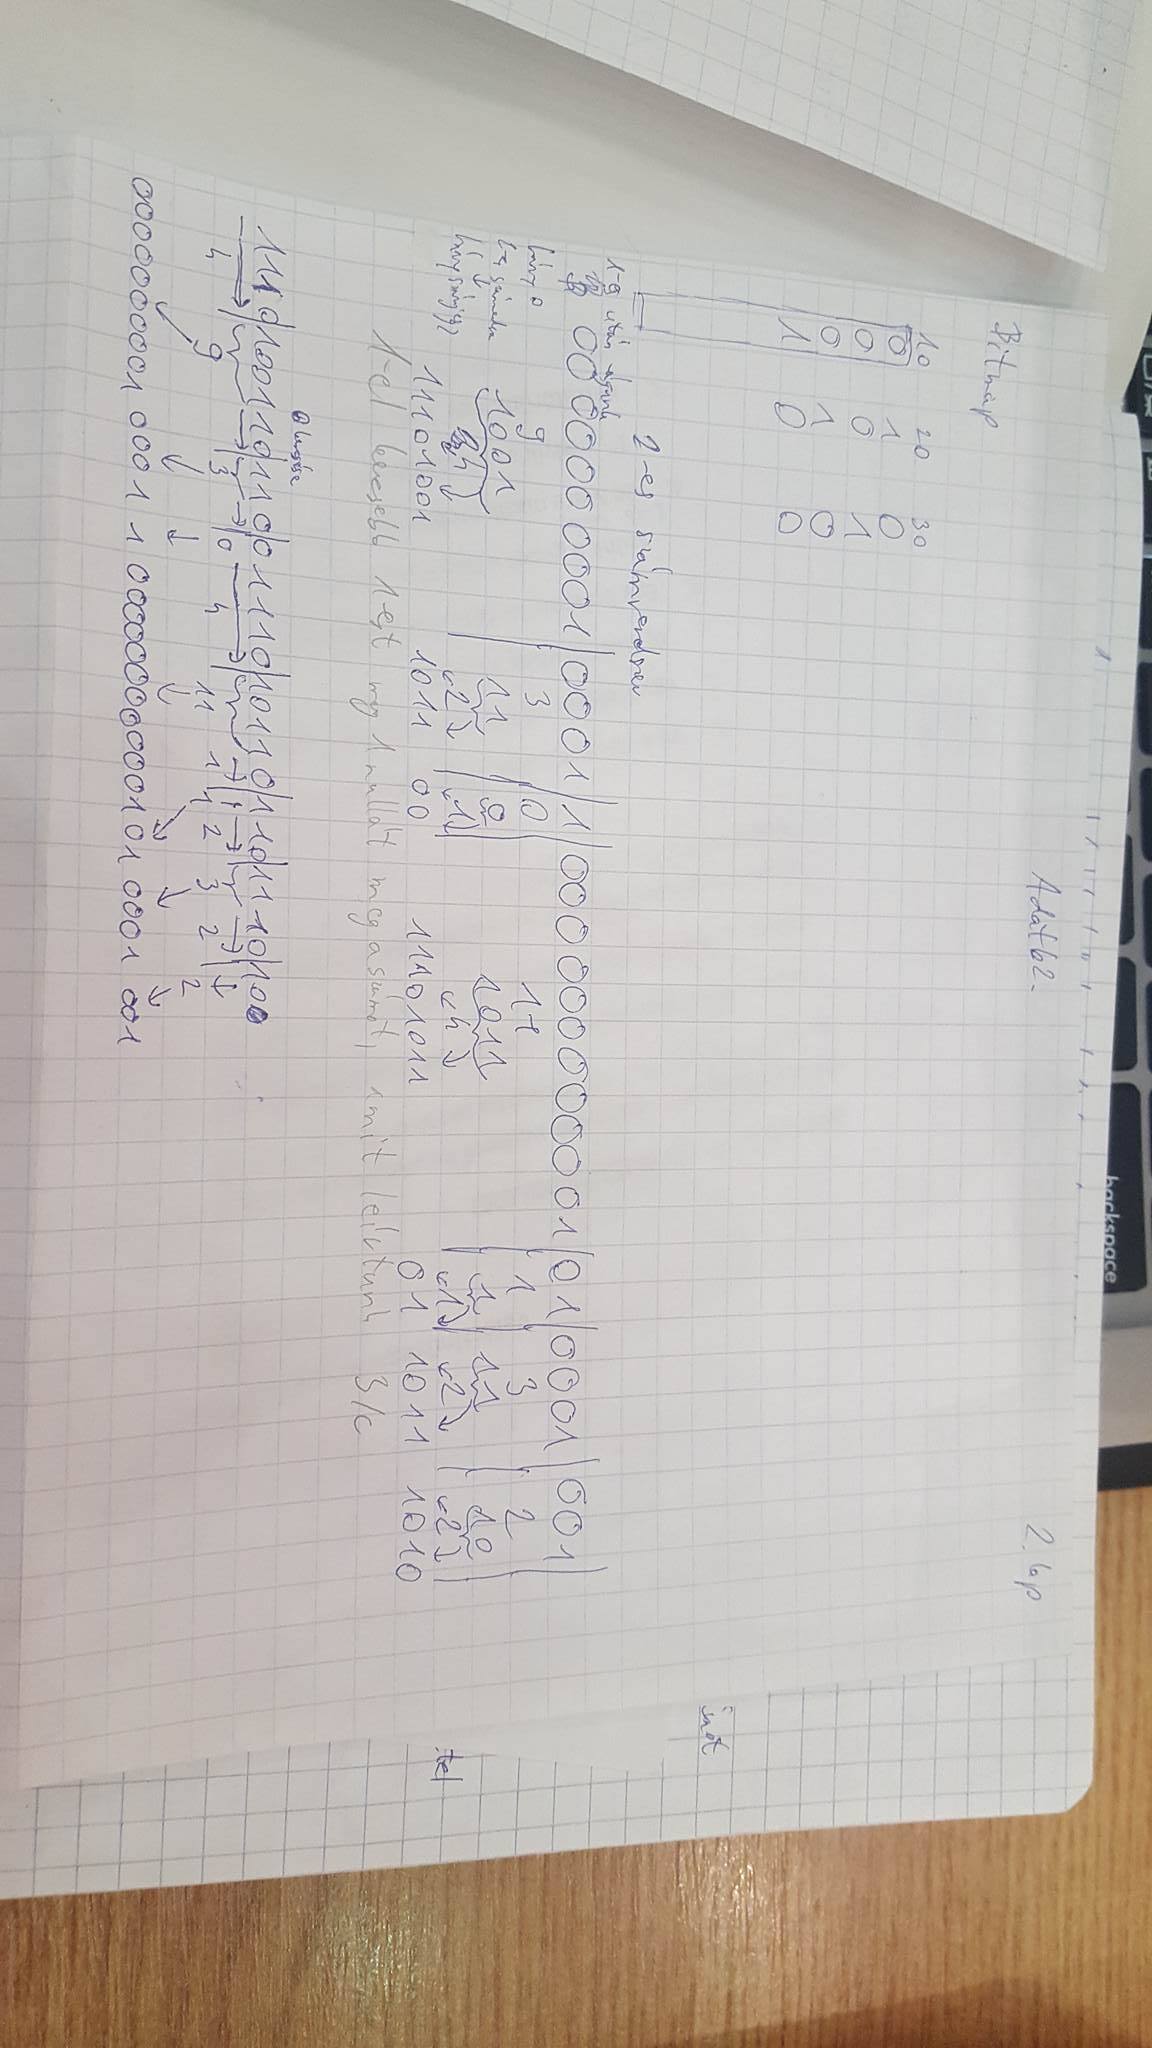 backspace
Adatb2. 2. gp
Bitmap
10 20 30
0 1 0
0 0 1
0 1 0
1 0 0
inat
2-es számrendszer
1-es után vágunk
0000000001|0001|1|000000000001|01|0001|001|
hány 0 9 3 0 11 1 3 2
1001 11 0 1011 1 11 10
hány számjegy 4 2 1 4 1 2 2
tel
11101001 1011 00 11101011 01 1011 1010
1-el kevesebb 1-est meg 1 nullát meg a számot, amit leírtunk 3/c
0 keresése
1110|100110|1100|01110|10110|1110|1110|100
4 9 3 0 4 11 1 1 2 3 2 2
0000000001 0001 1 000000000001 01 0001 001